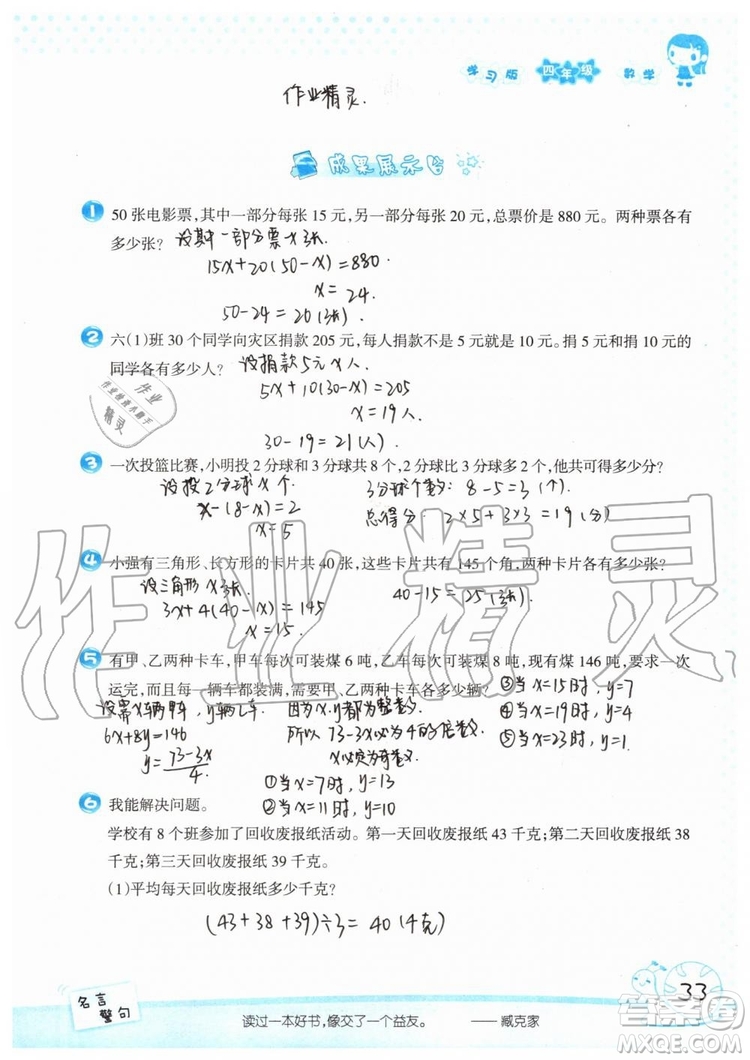 学习版 四年级 数学
作业精灵.
成果展示台
1 50 张电影票,其中一部分每张 15 元,另一部分每张 20 元,总票价是 880 元。两种票各有
多少张? 设其中一部分票x张
15x+20(50-x)=880
x=24.
50-24=20(张)
2 六(1)班 30 个同学向灾区捐款 205 元,每人捐款不是 5 元就是 10 元。捐 5 元和捐 10 元的
同学各有多少人? 设捐款5元x人.
5x+10(30-x)=205
x=19人.
30-19=21(人)
作业
作业快得小帮手
精灵
3 一次投篮比赛,小明投 2 分球和 3 分球共 8 个,2 分球比 3 分球多 2 个,他共可得多少分?
设投2分球x个. 3分球个数: 8-5=3(个)
x-(8-x)=2 总得分: 2×5+3×3=19(分)
x=5
4 小强有三角形、长方形的卡片共 40 张,这些卡片共有 145 个角,两种卡片各有多少张?
设三角形x张 40-15=25(张)
3x+4(40-x)=145
x=15.
5 有甲、乙两种卡车,甲车每次可装煤 6 吨,乙车每次可装煤 8 吨,现有煤 146 吨,要求一次
运完,而且每一辆车都装满,需要甲、乙两种卡车各多少辆? ③当x=15时,y=7
设需x辆甲车,y辆乙车. 因为x.y都为整数. ④当x=19时,y=4
6x+8y=146 所以73-3x必为4的倍数. ⑤当x=23时,y=1
y=73-3x/4 x必定为奇数
①当x=7时,y=13
②当x=11时,y=10
6 我能解决问题。
学校有 8 个班参加了回收废报纸活动。第一天回收废报纸 43 千克;第二天回收废报纸 38
千克;第三天回收废报纸 39 千克。
(1)平均每天回收废报纸多少千克?
(43+38+39)÷3=40(千克)
作业精灵
33
名言
警句
读过一本好书,像交了一个益友。 ——臧克家
答案圈
MXQE.COM